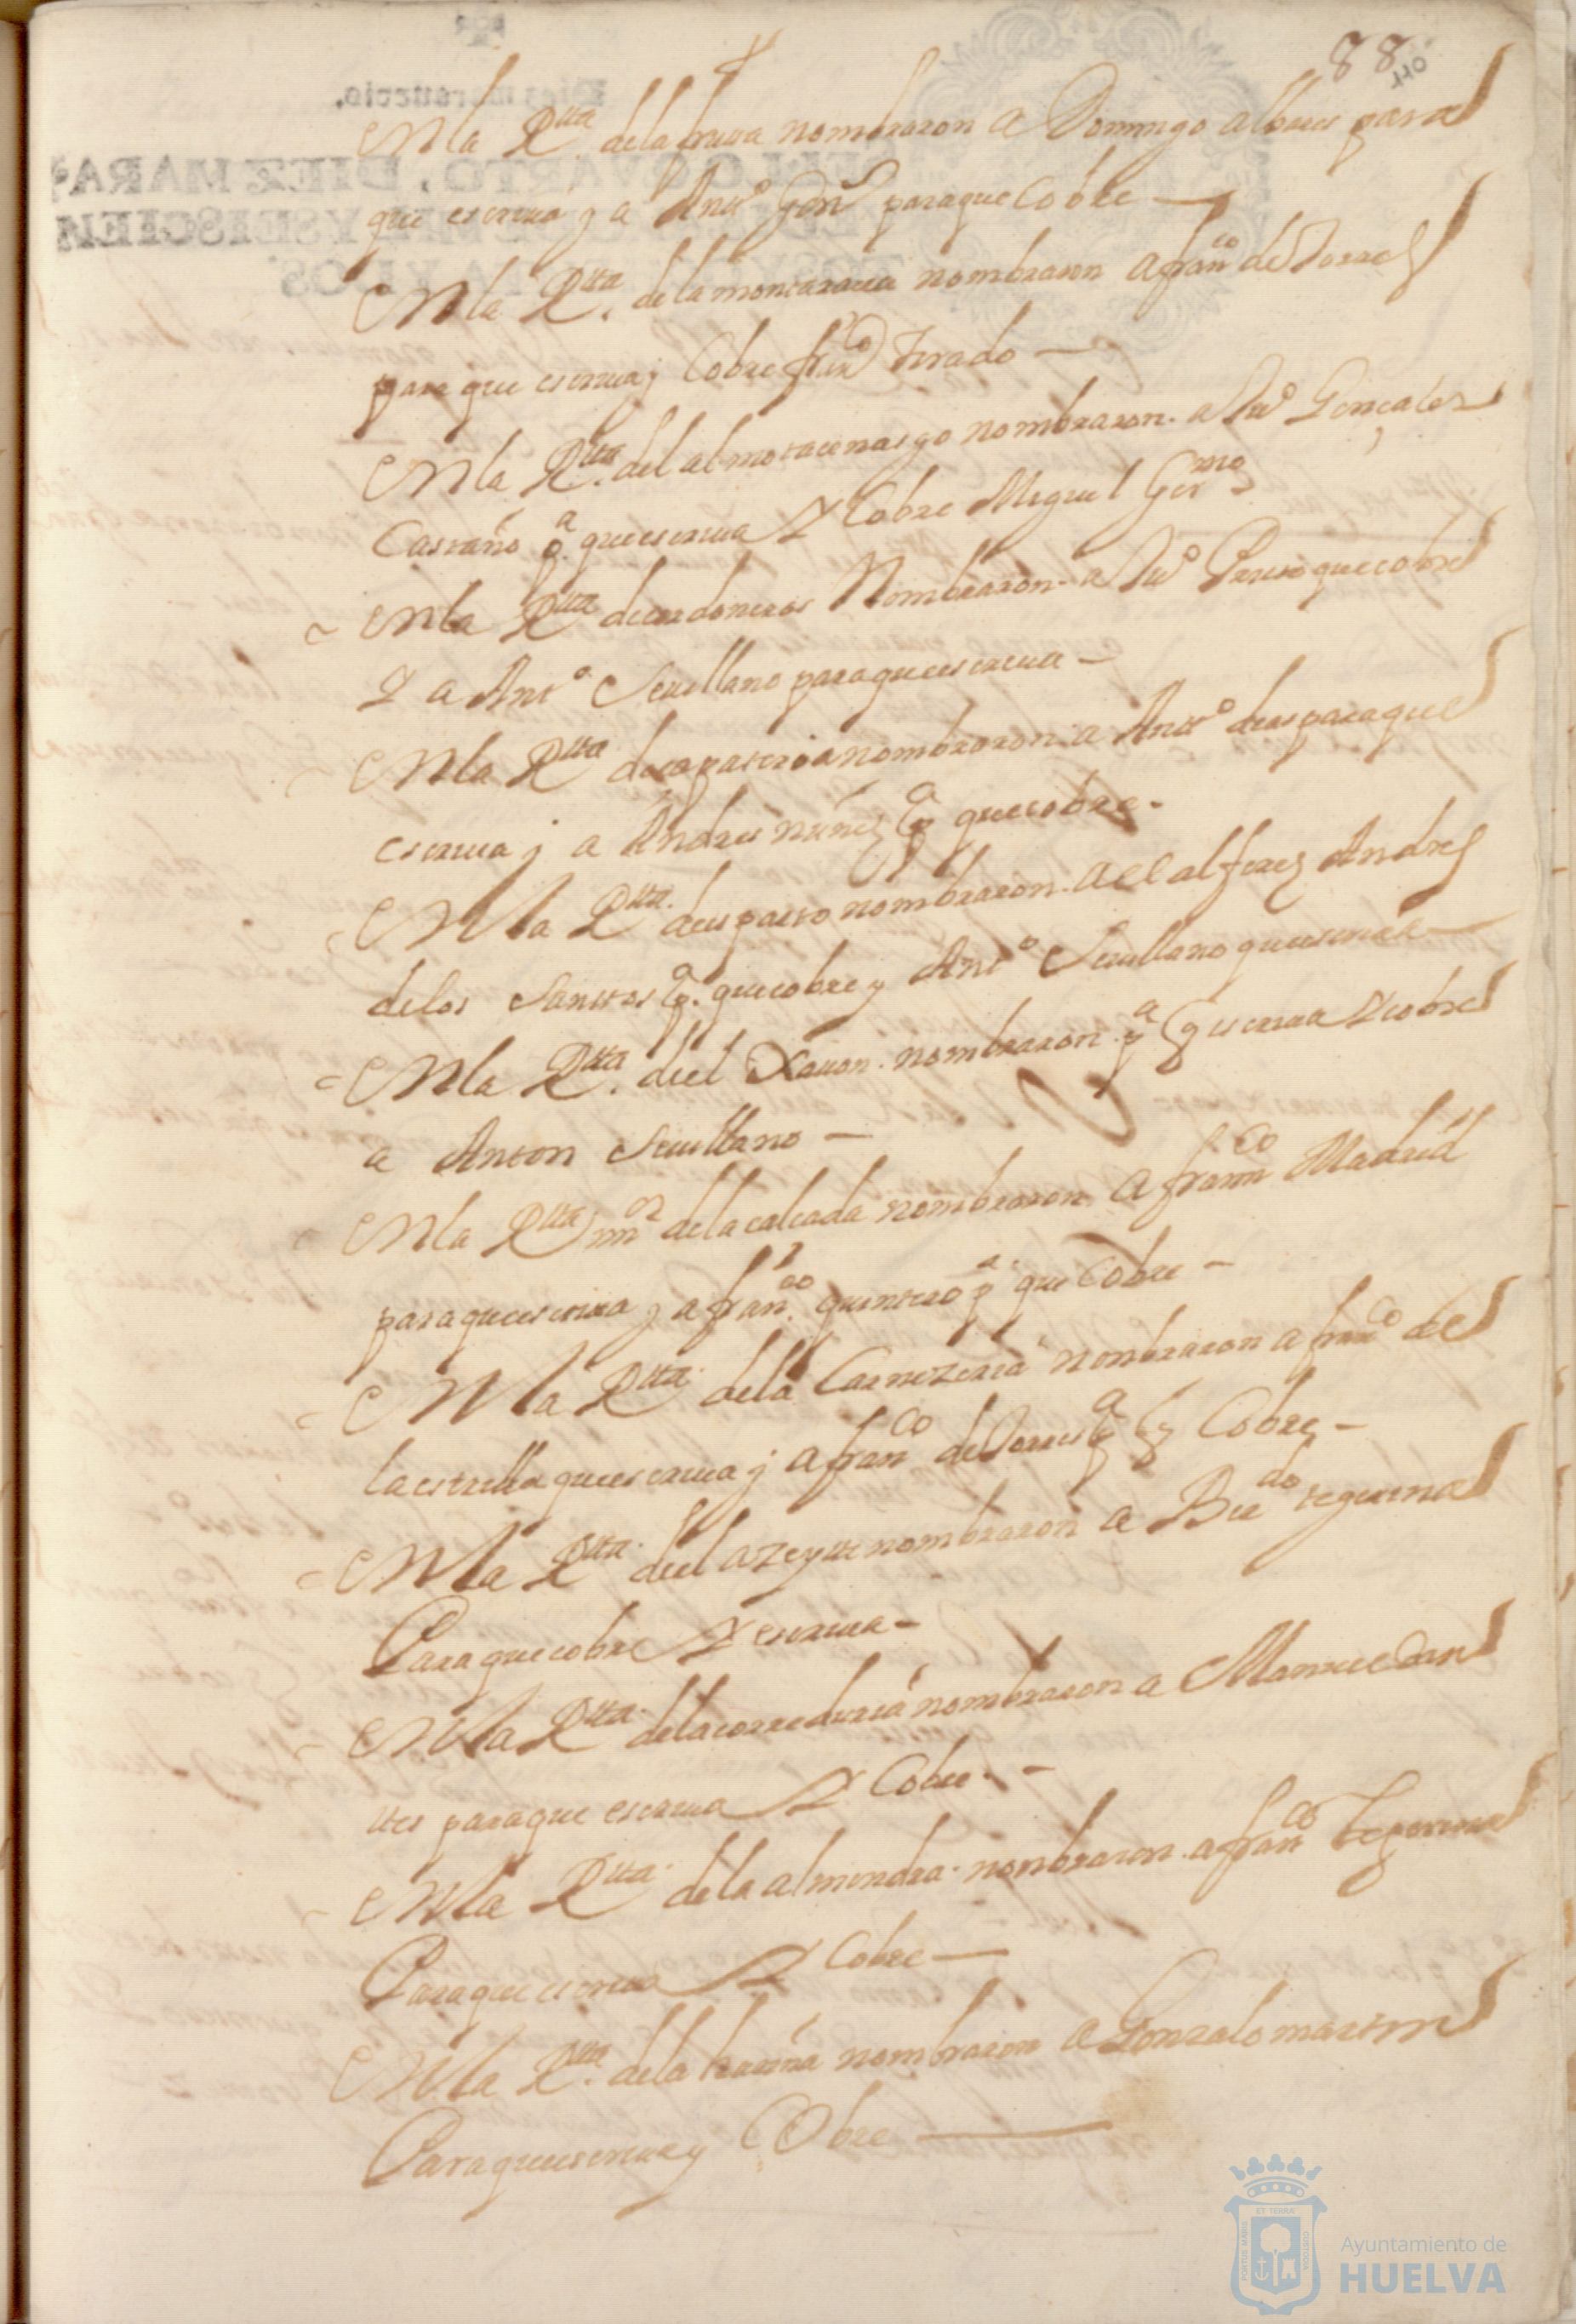 88
110
En la Rtta de la fruta nombraron a Domingo albares para
que escriua y a Antº Gon para que Cobre —
En la Rtta. de la montaracia nombraron a franco de Torres
para que escriua y Cobre franco tirado —
En la Rtta. del almotacenasgo nombraron a Juº Gonçales
Castaño pa. que escriua Y Cobre Miguel Germo
En la Rtta de cordoneros Nombraron a Juº Prieto que cobre
Y a Antº Seuillano para que escriua —
En la Rtta de nombraron a Antº dias para que
escriua y a Andres nuñes pa que cobre.
En la Rtta. de esparto nombraron a el alferes Andres
de los Santos pa. que cobre y Antº Seuillano que escriua —
En la Rtta. de el Xauon nombraron pa q escriua Y cobre
a Anton Seuillano —
En la Rtta de la calçada nombraron a franco Madrid
para que escriua y a franco quintero pa que Cobre —
En la Rtta. de la Carnizeria nonbraron a franco de
la estrella que escriua y a franco de Torres pa q Cobre —
En la Rtta. de el azeyte nombraron a Berdo teguina
Para que cobre Y escriua —
En la Rtta. de la correduria nombraron a Manuel
para que escriua Y Cobre. —
En la Rtta. de la almendra nonbraron a franco
Para que escriua Y Cobre —
En la Rtta. de la nombraron a Gonzalo martin
Para que escriua y Cobre —
Ayuntamiento de
HUELVA